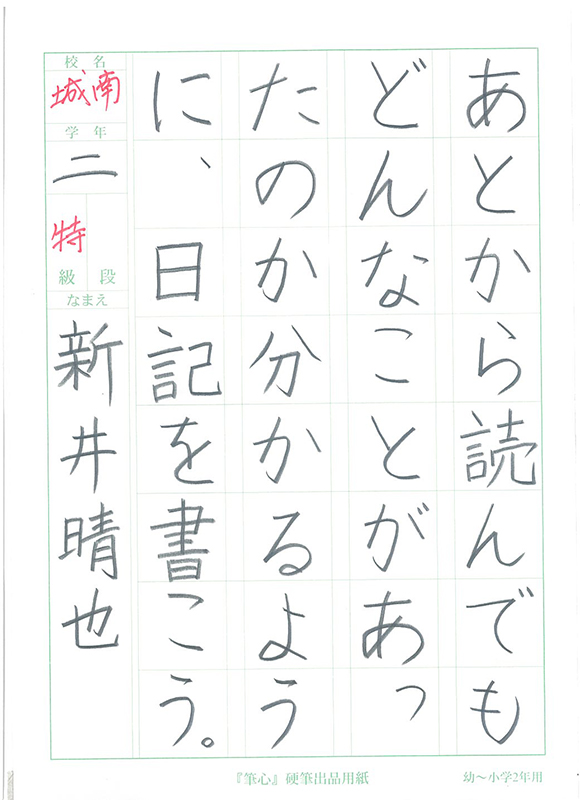 あとから読んでも
どんなことがあっ
たのか分かるよう
に、日記を書こう。
校名
城南
学年
二
特
級 段
なまえ
新井晴也
『筆心』硬筆出品用紙
幼～小学2年用